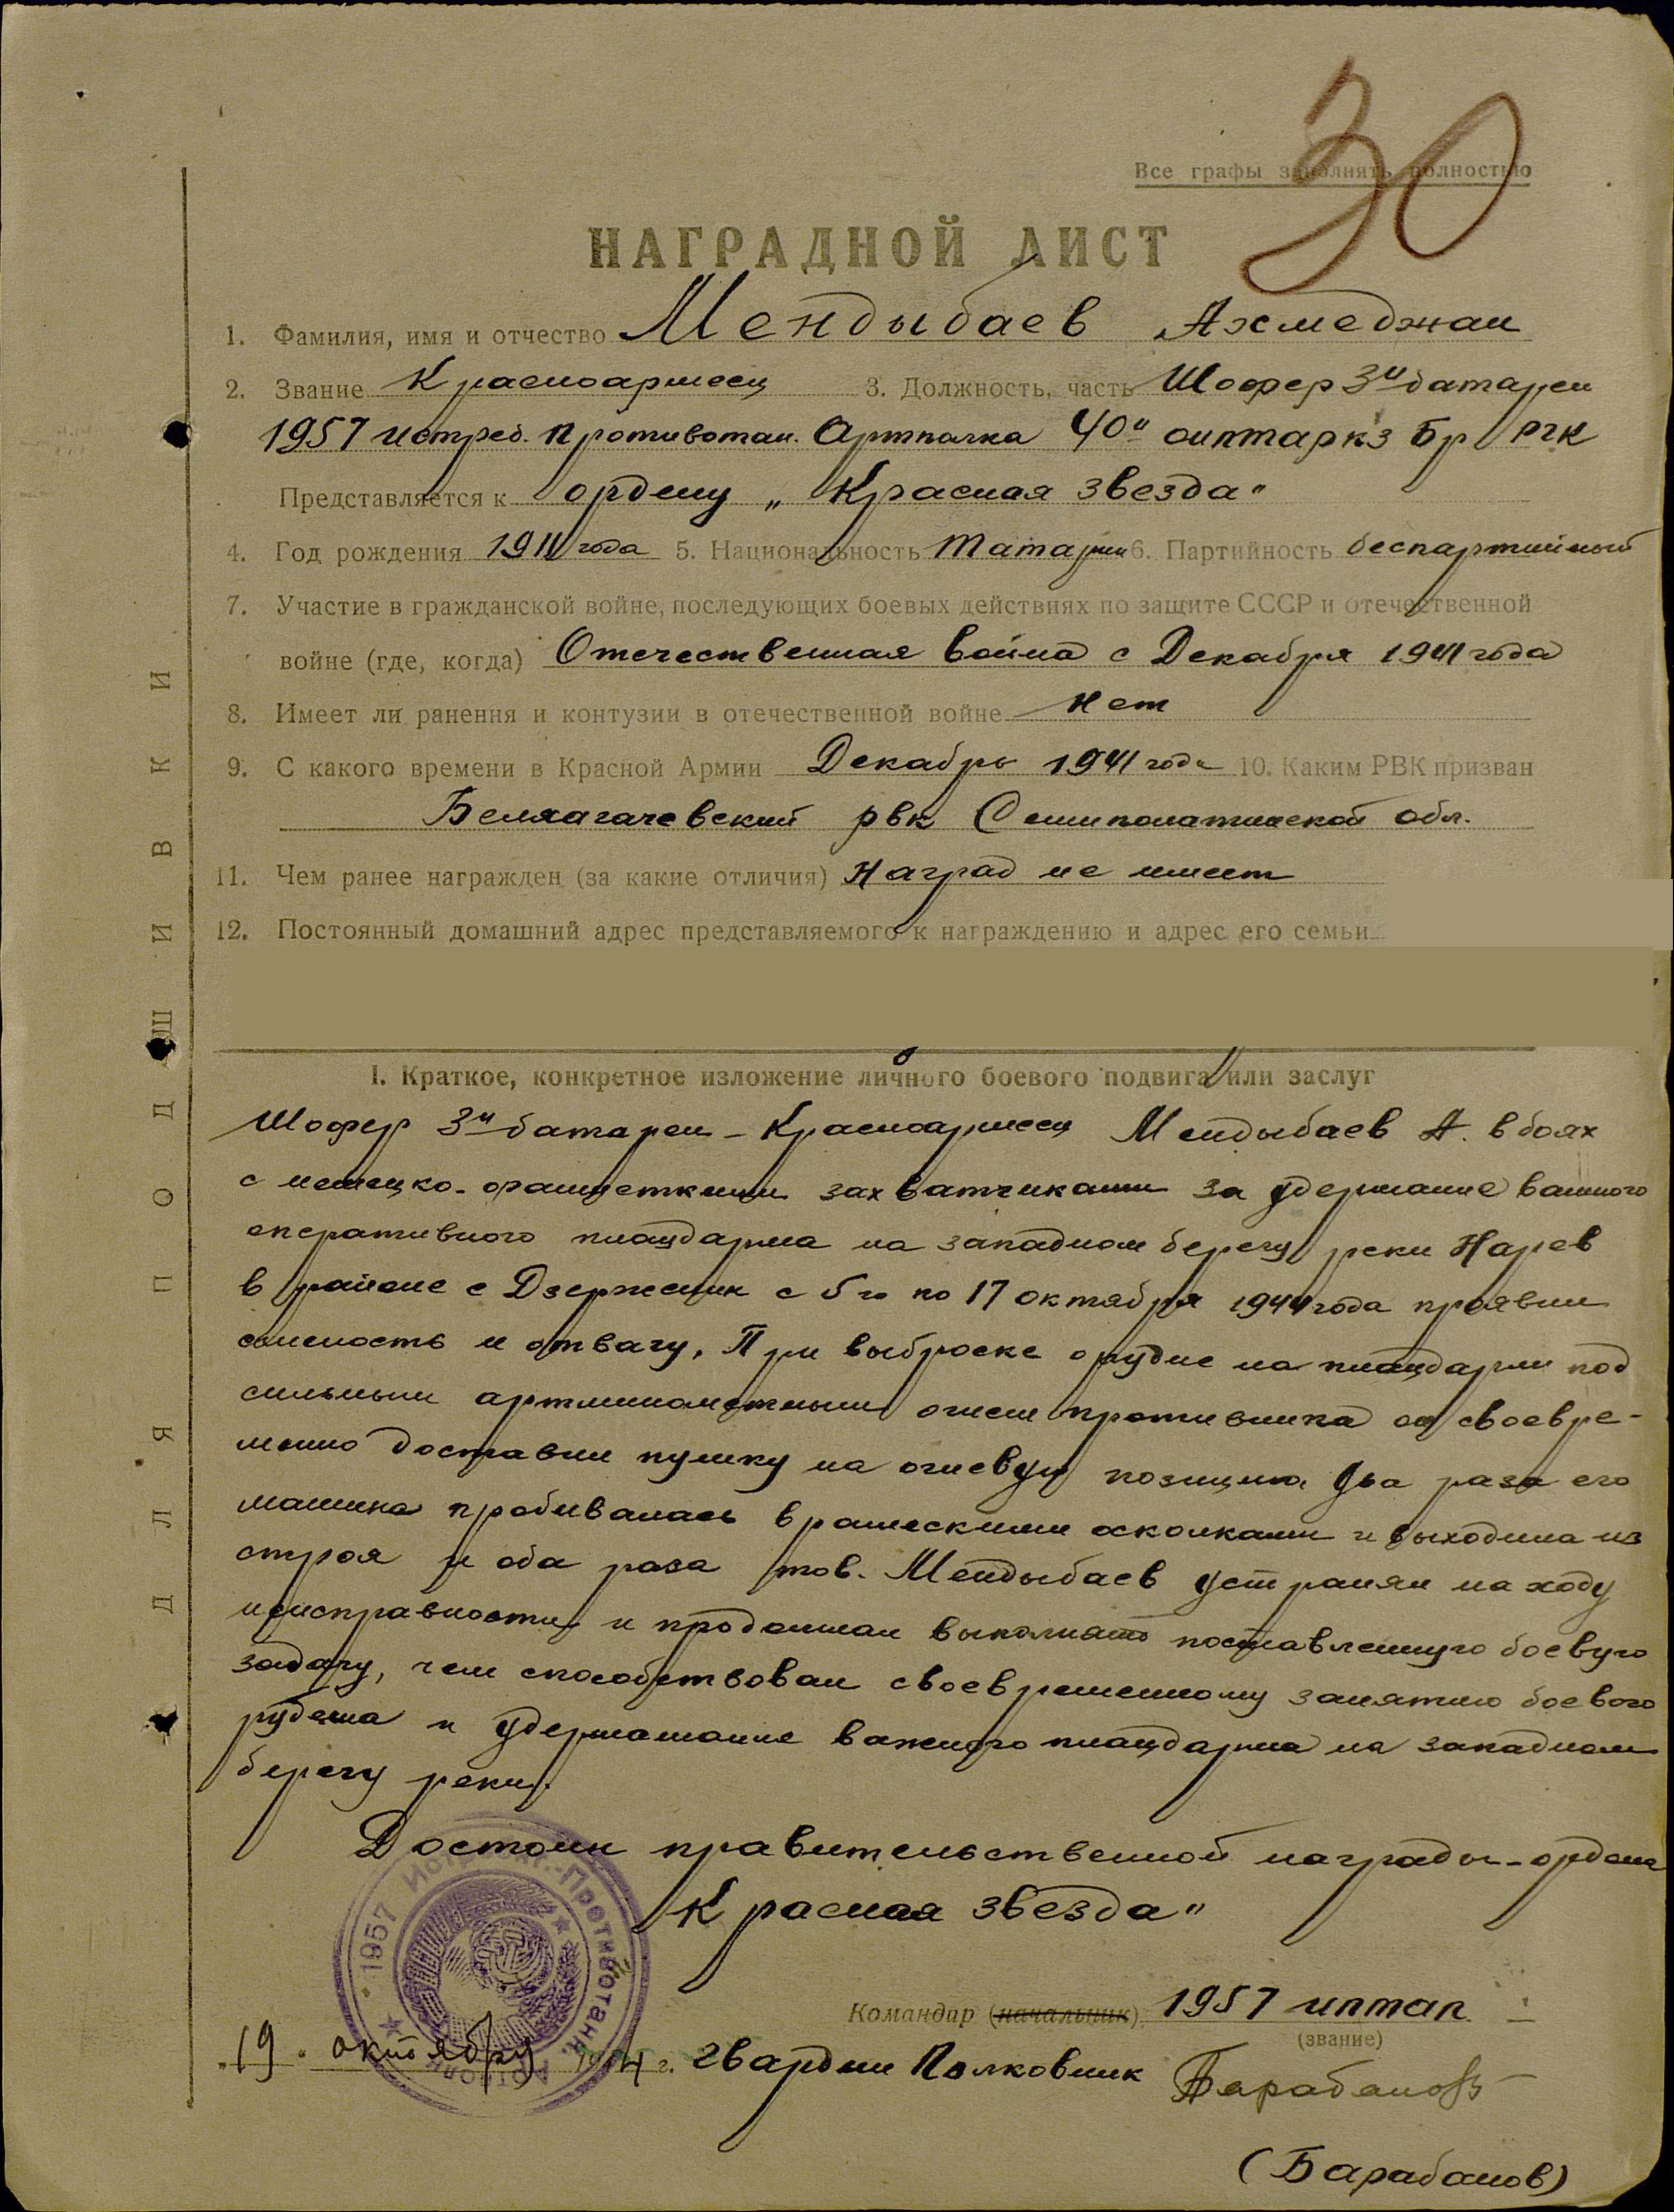 30
Все графы заполнять полностью
НАГРАДНОЙ ЛИСТ
1. Фамилия, имя и отчество Мендыбаев Ахмеджан
2. Звание Красноармеец 3. Должность, часть Шофер 3й батареи
1957 истреб. противотан. Артполка 40й оиптаркз Бр РГК
Представляется к ордену „Красная звезда"
4. Год рождения 1911 года 5. Национальность Татарин 6. Партийность беспартийный
7. Участие в гражданской войне, последующих боевых действиях по защите СССР и отечественной
войне (где, когда) Отечественная война с Декабря 1941 года
8. Имеет ли ранения и контузии в отечественной войне нет
9. С какого времени в Красной Армии Декабрь 1941 года 10. Каким РВК призван
Бельагачевский рвк Семипалатинской обл.
11. Чем ранее награжден (за какие отличия) Наград не имеет
12. Постоянный домашний адрес представляемого к награждению и адрес его семьи
I. Краткое, конкретное изложение личного боевого подвига или заслуг
Шофер 3й батареи - Красноармеец Мендыбаев А. в боях
с немецко-фашисткими захватчиками за удержание важного
оперативного плацдарма на западном берегу реки Нарев
в районе с Дзержений с 5го по 17 октября 1944 года проявил
смелость и отвагу. При выброске орудие на плацдарм под
сильным артминометным огнем противника он своевре-
менно доставил пушку на огневую позицию. Два раза его
машина пробивалась вражескими осколками и выходила из
строя и оба раза тов. Мендыбаев устранял на ходу
неисправности и продолжал выполнять поставленную боевую
задачу, чем способствовал своевременному занятию боевого
рубежа и удержание важного плацдарма на западном
берегу реки.
Достоин правительственной награды - ордена
Красная звезда"
Командир (начальник) 1957 иптап
(звание)
19 октября 1944 г. гвардии Полковник Барабанов
(Барабанов)
1957 Истр. Противотанк.
ДЛЯ ПОДШИВКИ